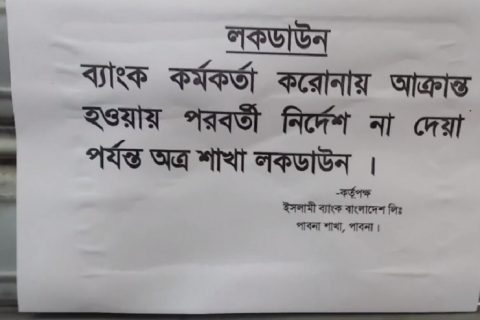 লকডাউন
ব্যাংক কর্মকর্তা করোনায় আক্রান্ত
হওয়ায় পরবর্তী নির্দেশ না দেয়া
পর্যন্ত অত্র শাখা লকডাউন ।
-কর্তৃপক্ষ
ইসলামী ব্যাংক বাংলাদেশ লিঃ
পাবনা শাখা, পাবনা ।